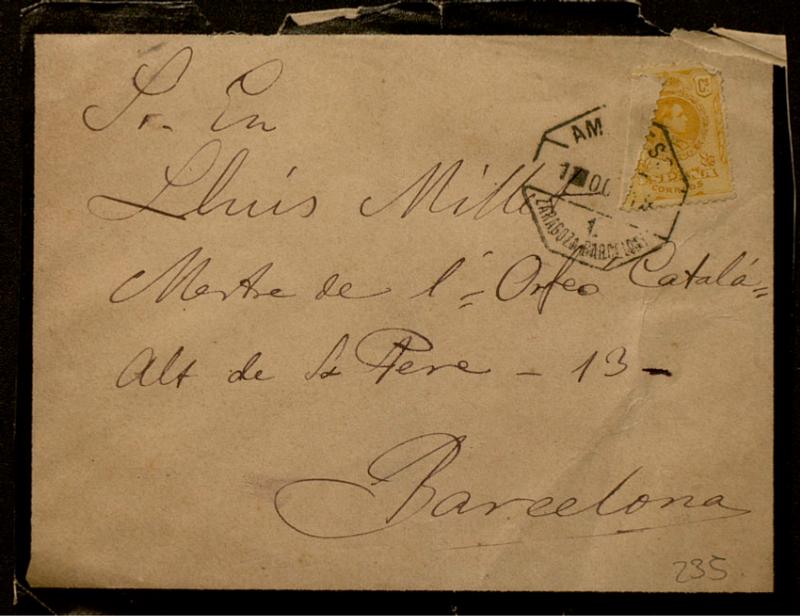 Sr. En
Lluís Millet
Mestre de l'Orfeo Catalá=
Alt de St Pere - 13 -
Barcelona
235
AM
17 OC
1.
ZARAGOZA-BARCELONA
Cs
CORREOS